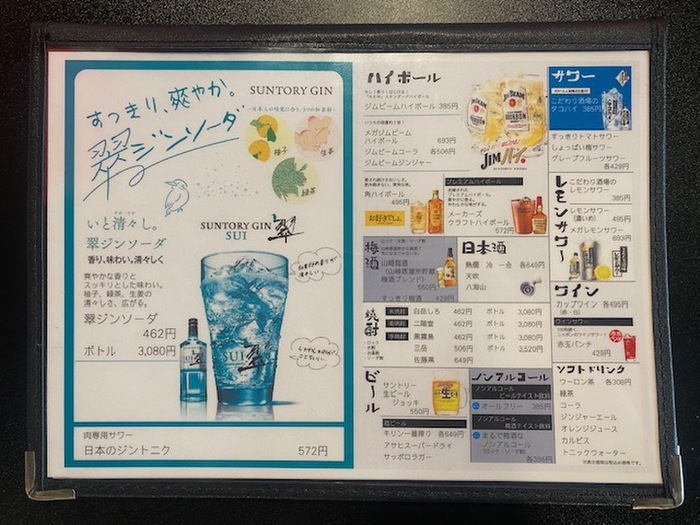 すっきり、爽やか。
翠ジンソーダ
SUNTORY GIN
柚子
生姜
緑茶
いと清々し。
翠ジンソーダ
香り、味わい、清々しく
爽やかな香りと
スッキリとした味わい。
柚子、緑茶、生姜の
清々しさ、広がる。
翠ジンソーダ
462円
ボトル 3,080円
SUNTORY GIN 翠
SUI
SUI 翠
肉専用サワー
日本のジントニク 572円
ハイボール
ジムビームハイボール 385円
メガジムビーム
ハイボール 693円
ジムビームコーラ 各506円
ジムビームジンジャー
JIM ハイ。
角ハイボール
495円
お好きでしょ。
プレミアムハイボール
メーカーズ
クラフトハイボール
572円
梅酒
ロック・水割・ソーダ割
山崎梅酒
(山崎蒸溜所貯蔵
梅酒ブレンド)
550円
すっきり梅酒 429円
日本酒
熱燗 冷 一合 各649円
天吹
八海山
焼酎
・ロック
・水割
・お湯割
・ソーダ割
白岳しろ 462円 ボトル 3,080円
二階堂 462円 ボトル 3,080円
黒霧島 462円 ボトル 3,080円
三岳 506円 ボトル 3,520円
佐藤黒 649円
ビール
サントリー
生ビール
ジョッキ
550円
瓶ビール
キリン一番搾り 各649円
アサヒスーパードライ
サッポロラガー
ノンアルコール
ノンアルコール
ビールテイスト飲料
オールフリー 385円
ノンアルコール
梅酒テイスト飲料
まるで梅酒な
ノンアルコール
(ロック・ソーダ割)
各385円
サワー
こだわり酒場の
タコハイ 385円
すっきりトマトサワー
しょっぱい梅サワー
グレープフルーツサワー
各429円
レモンサワー
こだわり酒場の
レモンサワー
385円
レモンサワー
(濃いめ) 495円
メガレモンサワー
693円
ワイン
カップワイン 各495円
(赤・白)
ワインサワー
赤玉パンチ
429円
ソフトドリンク
ウーロン茶 各308円
緑茶
コーラ
ジンジャーエール
オレンジジュース
カルピス
トニックウォーター
※表示価格は税込価格です。